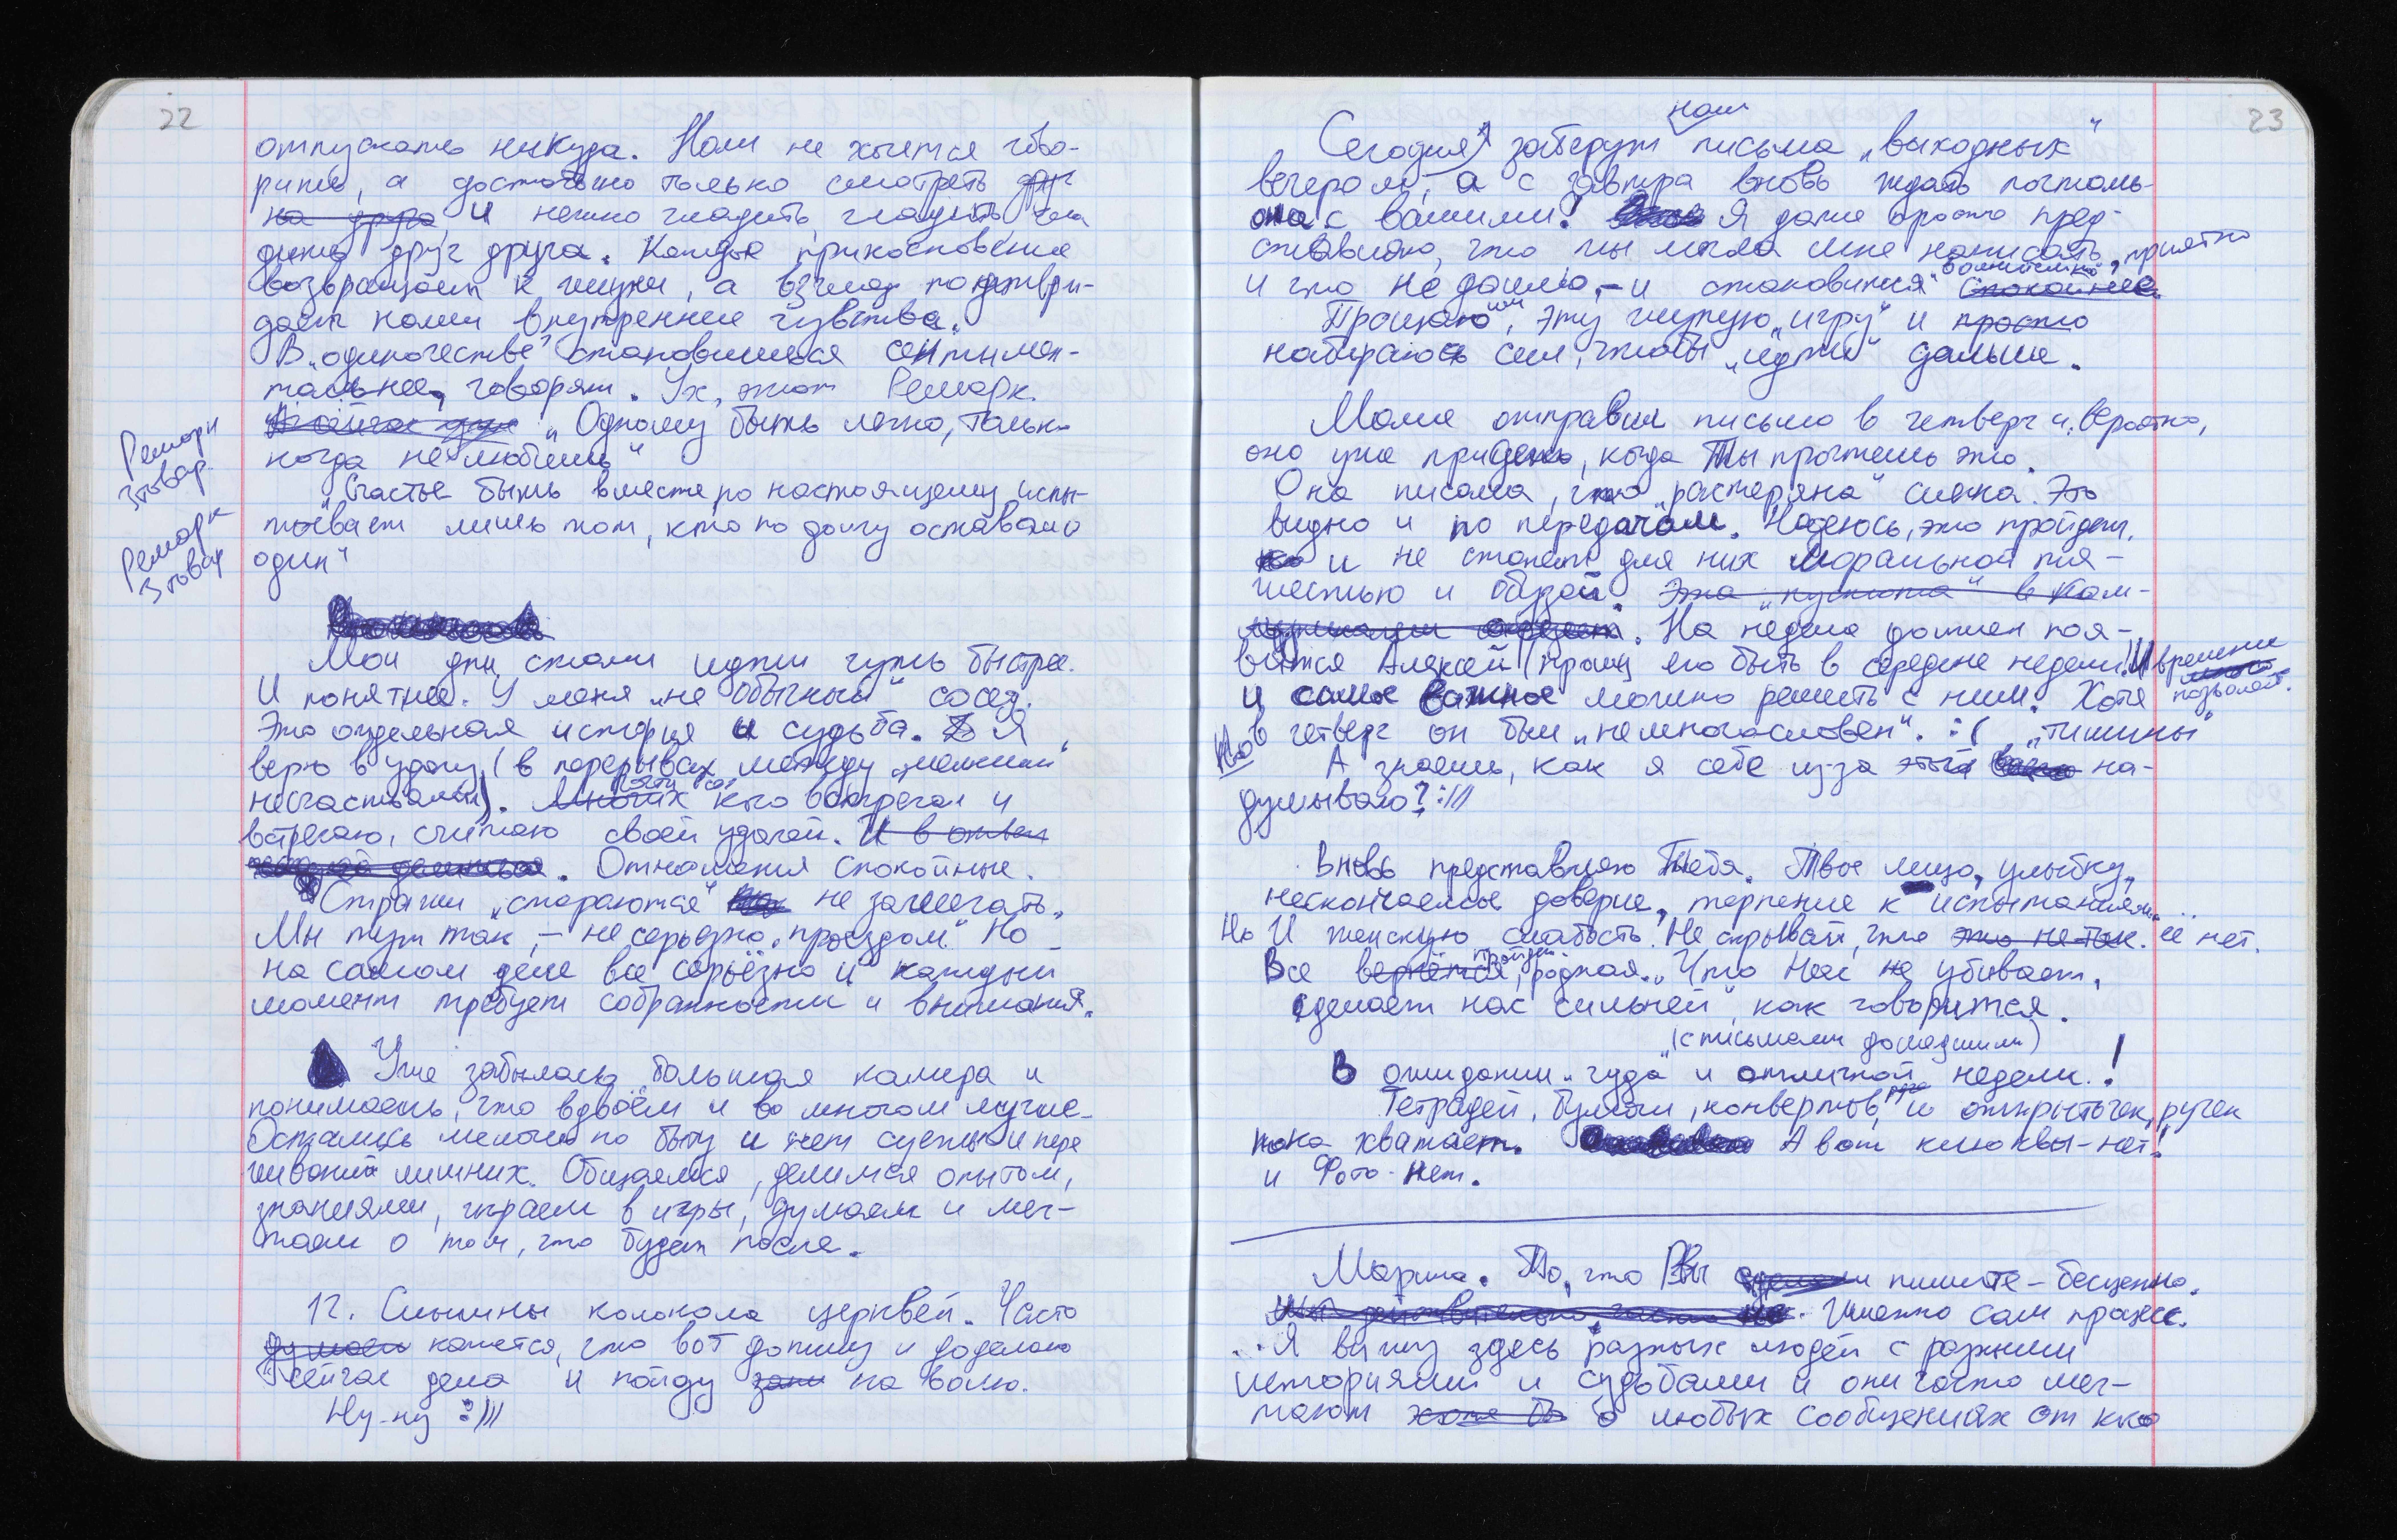 22
отпускать никуда. Нам не хочется гово-
рить, а достаточно только смотреть друг
на друга и нежно гладить, гладить,
друг друга. Каждое прикосновение
возвращает к жизни, а взгляд подтвер-
дает наши внутренние чувства.
В „одиночестве" становишься сентимен-
тальнее, говорят. Ух, этот Ремарк.
„Одному быть легко, только
когда не любишь"
Ремарк
3 товар.
„Счастье быть вместе по настоящему испы-
тывает лишь тот, кто по долгу оставался
один"
Ремарк
3 товар
Мои дни стали идти чуть быстрее.
И понятнее. У меня „не обычный" сосед.
Это отдельная история и судьба. Я
верю в удачу (в перерывах между „мелкими"
несчастьями). Многих кого встречал и
встречаю, считаю своей удачей. И в ответ
. Отношения спокойные.
Стражи „стараются" не замечать.
Мы тут так, – не серьезно, „проездом". Но
на самом деле все серьёзно и каждый
момент требует собранности и внимания.
Уже забылась большая камера и
понимаешь, что вдвоём и во многом лучше.
Остались мелочи по быту и нет суеты и пере
живаний лишних. Общаемся, делимся опытом,
знаниями, играем в игры, думаем и меч-
таем о том, что будет после.
12. Слышны колокола церквей. Часто
думаем кажется, что вот допишу и доделаю
сейчас дела и пойду на волю.
Ну-ну :)))
23
Сегодня заберут наши письма „выходных"
вечером, а с завтра вновь ждать почталь-
она с вашими! Я даже просто пред-
ставляю, что ты могла мне написать, приятно
и что не дошло, – и становится спокойнее.
Прощаю им эту глупую „игру" и просто
набираюсь сил, чтобы „идти" дальше.
Маме отправил письмо в четверг и, вероятно,
оно уже придет, когда Ты прочтешь это.
Она писала, что „растеряна" слегка. Это
видно и по передачам. Надеюсь, это пройдет,
и не станет для них моральной тя-
жестью и обузой. Эта „пустота" в ком-
муникации . На неделе должен поя-
виться Алексей (прошу его быть в середине недели! И времени
позволяет.
и самое важное можно решить с ним. Хотя
Но в четверг он был „немногословен". :( „тишины"
А знаешь, как я себе из-за этой на-
думываю? :)))
Вновь представляю Тебя. Твое лицо, улыбку,
нескончаемое доверие, терпение к испытаниям...
Но И женскую слабость. Не скрывай, что это не так. её нет.
Все вернётся, пройдет родная. „Что Нас не убивает,
сделает нас сильней", как говорится.
(с письмами дошедшими)
В ожидании „чуда" и отличной недели. !
Тетрадей, бумаги, конвертов, и открыточек, ручек
пока хватает. А вот клюквы-нет!
и Фото-нет.
Марина. То, что Вы пишите – бесценно.
. Именно сам процесс.
...Я вижу здесь разных людей с разными
историями и судьбами и они часто меч-
тают хотя бы о любых сообщениях от кого